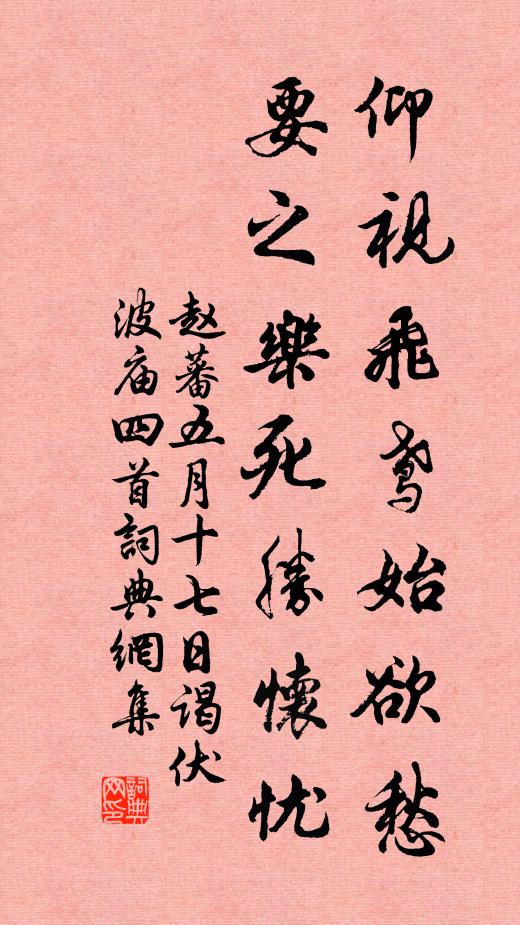 仰视飞鸢始欲愁
要之樂死勝懷忧
赵蕃五月十七日谒伏
波庙四首詞典網集
詞典
网印